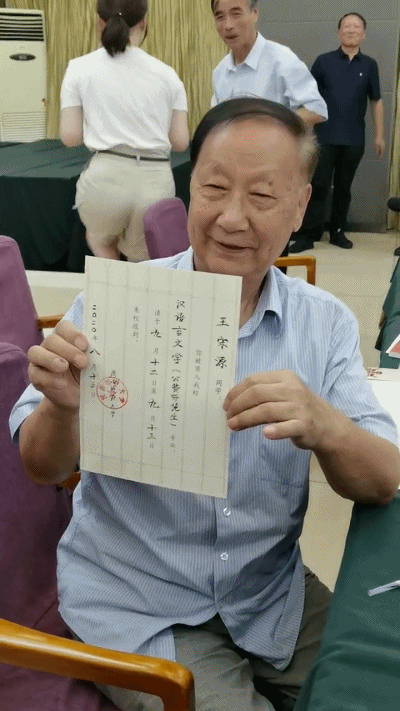 王宋源 同学
你被录入我校
汉语言文学(公费师范生) 专业
请于 九月十二日至九月十三日
来校报到
二〇二〇年八月十二日